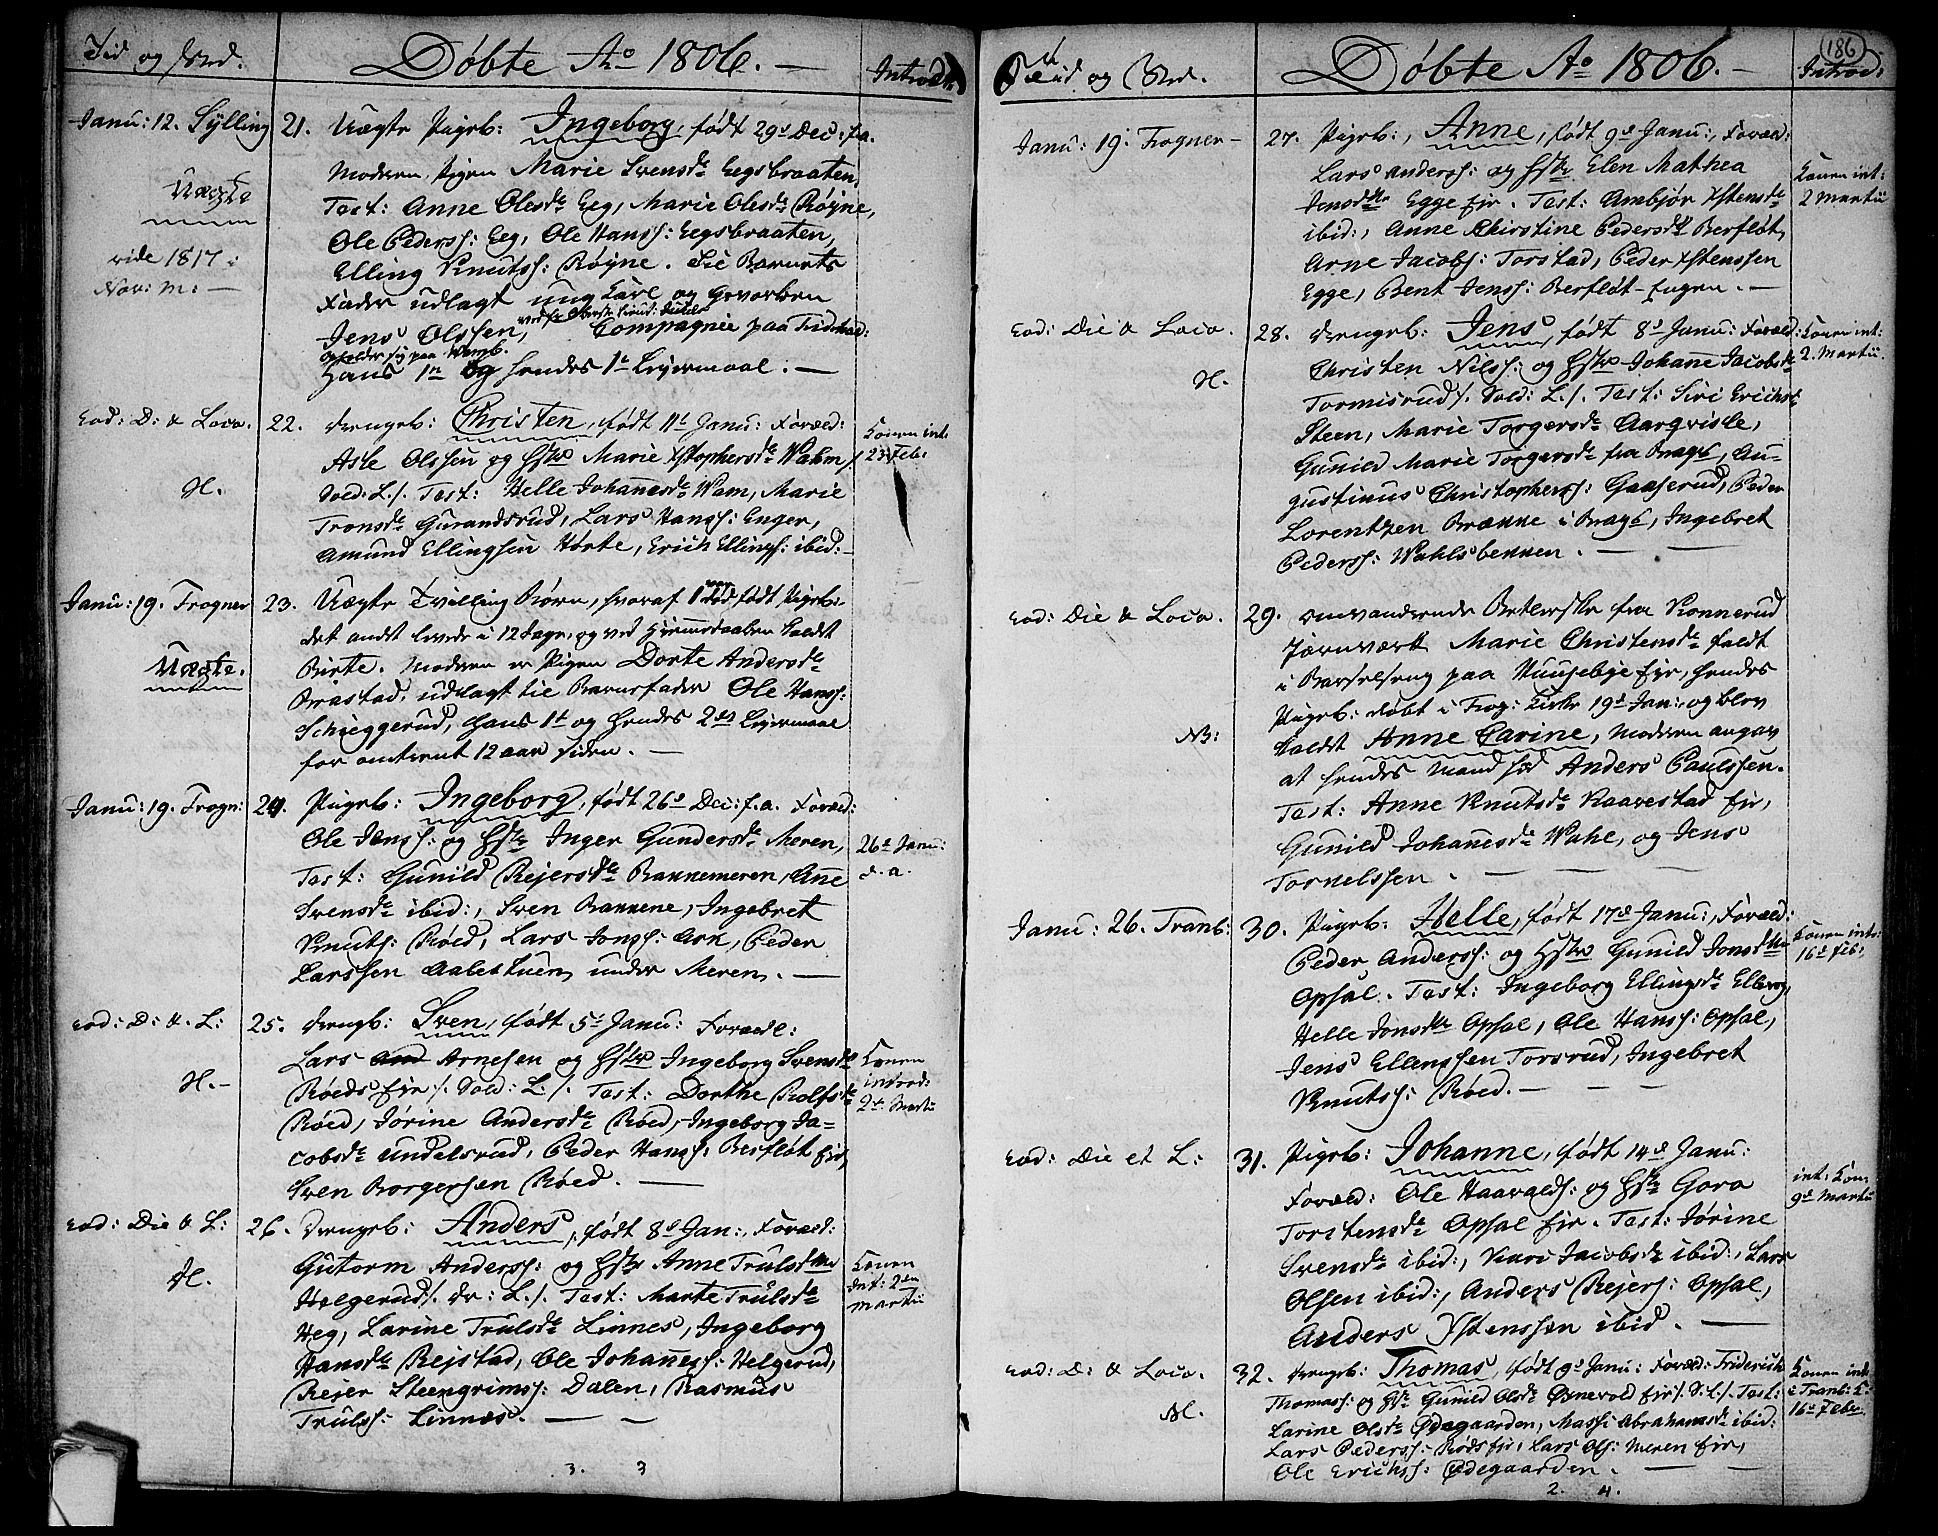 Tid og Sted.
Døbte Ao 1806. —
Introd:
Janu: 12. Sylling
Uægte
vide 1817:
Nov: m. —
21. Uægte Pigeb: Ingeborg, født 29d Dec: f.a.
Moderen Pigen Marie Svensdr Eegsbraaten,
Test: Anne Olesdr Eeg, Marie Olesdr Røyne,
Ole Peders: Eeg, Ole Hans: Eegsbraaten,
Elling Knuts: Røyne. Til Barnets
Fader udlagt ung Karl og
Jens Olssen, Compagnie paa
opholder sig paa
Hans 1te og hendes 1te Lejermaal. —
eod: D: & Loco.
N.
22. Drengeb: Christen, født 11te Janu: Foræld:
Asle Olssen og Hstr Marie Xstophersdr Wahm /
Sold: L./. Test: Helle Johanesdr Wam, Marie
Tronsdr Gurandsrud, Lars Hans: Enger,
Amund Ellingsen Hørte, Erich Ellings: ibid: —
Konen int:
23 Feb:
Janu: 19. Frogner
Uægte.
23. Uægte Tvilling Børn, hvoraf 1 var død født Pigeb:
det andet levede i 12 Dage, og ved Hjemmedaaben kaldt
Birte. Moderen er Pigen Dorte Andersdr
Brastad, udlagt til Barnefader Ole Hans:
Schieggerud, hans 1te og hendes 2det Lejermaal
for omtrent 12 aar siden. —
Janu: 19. Frogn:
24. Pigeb: Ingeborg, født 26d Dec: f.a. Foræld:
Ole Jens: og Hstr Inger Gundersdr Meren,
Test: Gunild Rejersdr Bannemeren, Ane
Svensdr ibid:, Sven Bannene, Ingebret
Knuts: Røed, Lars Jons: Ark, Peder
Larssen Aabestuen under Meren. —
26d Janu:
d. a.
eod: D: & L:
N. —
25. Drengb: Sven, født 5d Janu: Foræld:
Lars Arnesen og Hstr Ingeborg Svensdr
Røeds ejr /. Sold: L./. Test: Dorthe Rolfsdr
Røed, Jørine Andersdr Røed, Ingeborg Ja=
cobsdr Undelsrud, Peder Hans: Berfløt ejr,
Sven Borgersen Røed. —
Konen
introd:
2d Martii
eod: Die & L:
N.
26. Drengeb: Anders, født 8d Jan:, Foræld:
Gutorm Anders: og Hstr Anne Trulsdr
Helgerud /. Dr: L./. Test: Marte Trulsdr
Heg, Larine Trulsdr Linnes, Ingeborg
Hansdr Rejstad, Ole Johanes: Helgerud,
Rejer Steengrims: Dalen, Rasmus
Truls: Linnes. — —
Konen
Int: 2den
Martii
3. 3
og Sted.
Døbte Ao 1806. —
186
Introd:
Janu: 19: Frogner —
27. Pigeb:, Anne, født 9d Janu:, Foræld:
Lars Anders: og Hstr Elen Mathea
Jensdr Egge ejr. Test: Ambjør Xstensdr
ibid:, Anne Chirstine Pedersdr Berfløt,
Arne Jacobs: Torstad, Peder Xstenssen
Egge, Bent Jens: Berfløt-Engen. —
Konen int:
2 Martii
eod: Die & Loco.
N.
28. Drengeb: Jens, født 8d Janu: Foræld:
Christen Nils: og Hstr Johane Jacobsdr
Tormisrud /. Sold: L./. Test: Siri Erichsdr
Steen, Marie Torgersdr Aargvisle,
Gunild Marie Torgersdr fra Brag:, Au=
gustinus Christophers: Gaaserud, Peder
Lorentzen Brænne i Brag:, Ingebret
Peders: Wahlsbekken. — —
Konen int:
2. Martii.
eod: Die & Loco.
NB:
29. Omvandrende Betlerske fra Konnerud
Jernværk Marie Christensdr faldt
i Barselseng paa Huusebye ejr, hendes
Pigeb: døbt i Frog: Kirke 19d Jan: og blev
kaldet Anne Carine, Moderen angav
at hendes Mand hed Anders Paulssen.
Test: Anne Knutsdr Kaarestad ejr,
Gunild Johanesdr Wahl, og Jens
Tornelssen. — — —
Janu: 26. Tranb:
30. Pigeb: Helle, født 17d Janu:, Foræld:
Peder Anders: og Hstr Gunild Jonsdr
Opsal. Test: Ingeborg Ellingsdr Elleroy,
Helle Jonsdr Opsal, Ole Hans: Opsal,
Jens Ellenssen Torsrud, Ingebret
Knuts: Røed. — — —
Konen int:
16d Feb:
eod: Die et L:
31. Pigeb: Johanne, født 14d Janu:
Foræld: Ole Haavalds: og Hstr Goro
Torstensdr Opsal ejr. Test: Jørine
Svensdr ibid:, Kari Jacobsdr ibid:, Lars
Olsen ibid:, Anders Rejers: Opsal,
Anders Ystenssen ibid. —
int: Kon:
9d Martii
eod: D: & Loco.
N.
32. Drengeb: Thomas, født 9d Janu: Foræld: Friderich
Thomas: og Hstr Gunild Olsdr Øvnevold ejr /. S: L./. Test:
Larine Olsdr Ødegaarden, Massi Abrahamsdr ibid:
Lars Peders: Røds ejr, Lars Ols: Meren ejr,
Ole Erichs: Ødegaarden. — —
Konen int:
i Tranb: K:
16d Feb:
2. 4.